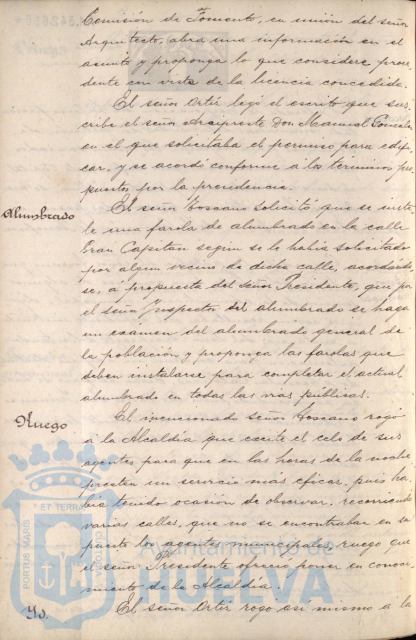 Comisión de Fomento, en unión del señor
Arquitecto, abra una información en el
asunto y proponga lo que considere proce
dente con vista de la licencia concedida.
El señor Ortiz leyó el escrito que sus
cribe el señor Arcipreste Don Manuel
en el que solicitaba el permiso para edifi
car, y se acordó conforme a los términos pro
puestos por la presidencia.
Alumbrado
El señor Toscano solicitó que se insta
le una farola de alumbrado en la calle
Gran Capitan segun se le habia solicitado
por algun vecino de dicha calle, acordando
se, á propuesta del Señor Presidente, que por
el señor Inspector del alumbrado se haga
un examen del alumbrado general de
la población y proponga las farolas que
deben instalarse para completar el actual
alumbrado en todas las vias públicas.
Ruego
El mencionado señor Toscano rogó
á la Alcaldía que excite el celo de sus
agentes para que en las horas de la noche
presten un servicio mas eficaz, pues ha
bia tenido ocasión de observar, recorriendo
varias calles, que no se encontraban en su
puesto los agentes municipales, ruego que
el señor Presidente ofreció poner en conoci
miento de la Alcaldía.
Yd.
El señor Ortiz rogo asi mismo a la
PORTUS MARIS ET TERRAE
Ayuntamiento de
HUELVA